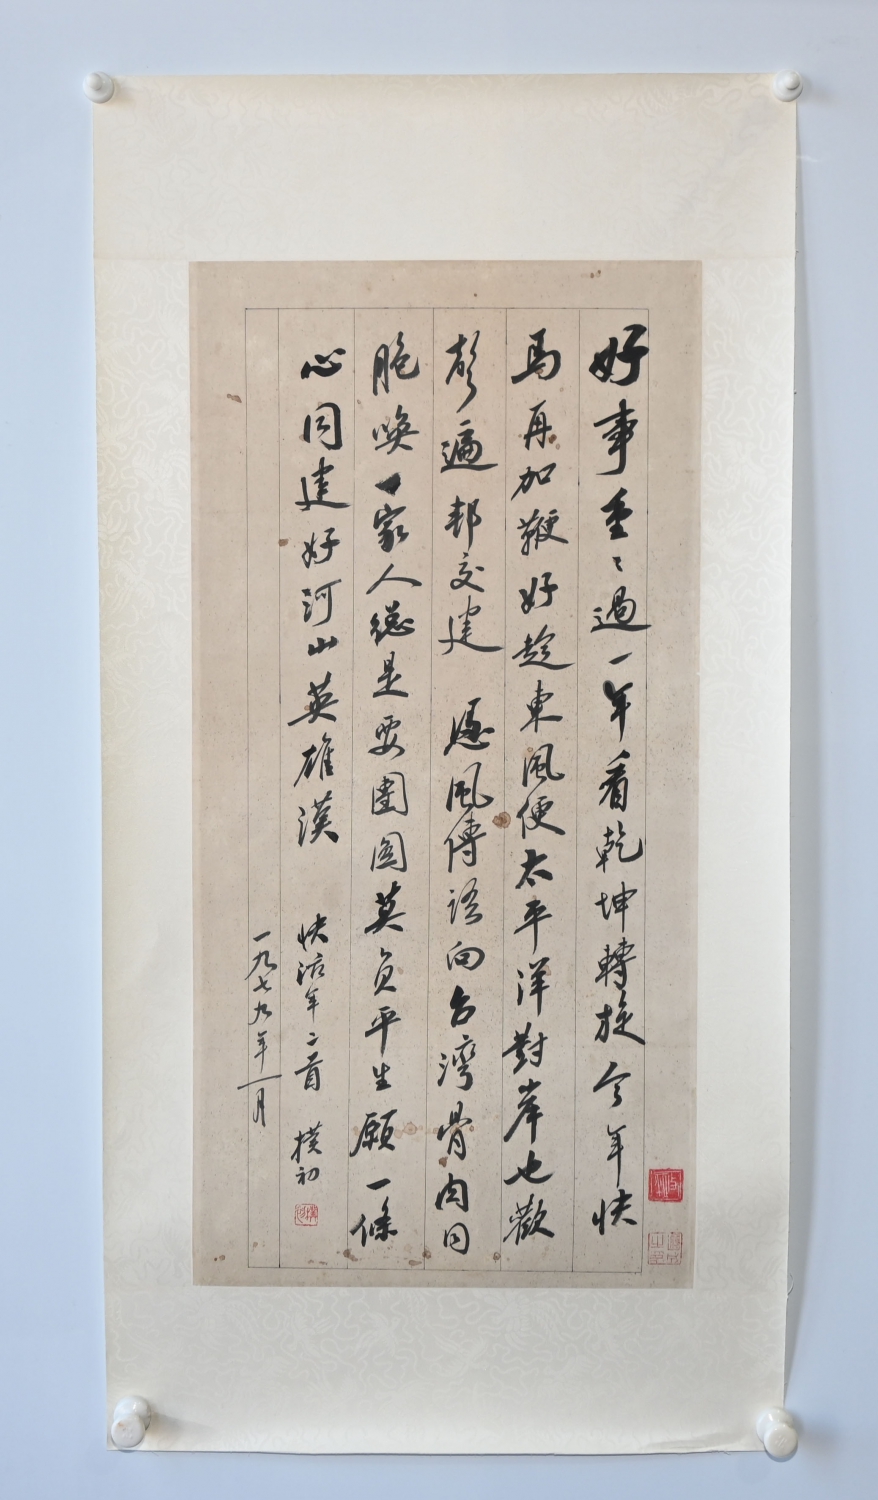 好事重〻過一年看乾坤轉旋今年快
馬再加鞭好趁東風便太平洋對岸也歡
聲遍邦交建 憑風傳語向台灣骨肉同
胞喚一家人總是要團圓莫負平生願一條
心同建好河山英雄漢 快活年二首 樸初
一九七九年一月